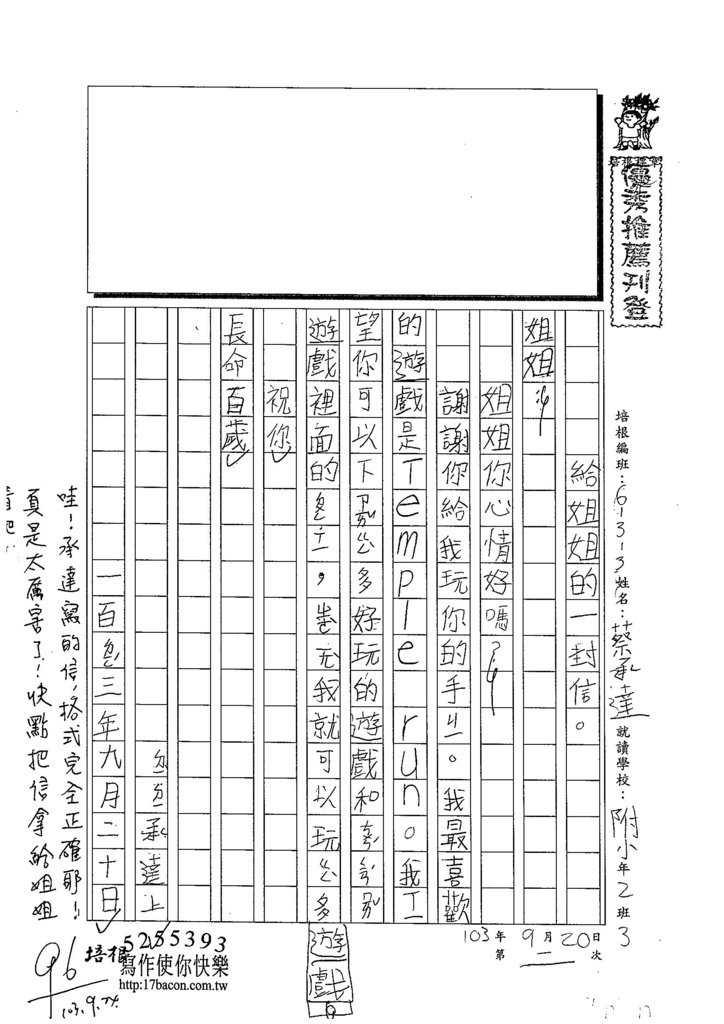 優秀推薦刊登
培根編班：6-3-3 姓名：蔡承達 就讀學校：附小 年2班3
103年9月20日
第二次
給姐姐的一封信。
姐姐：
姐姐你心情好嗎？
謝謝你給我玩你的手ㄐㄧ。我最喜歡
的遊戲是Temple run。我ㄒㄧ
望你可以下 多好玩的遊戲和
遊戲裡面的 ，我就可以玩 多
遊戲。
祝你
長命百歲
承達上
一百 三年九月二十日
哇！承達寫的信，格式完全正確耶！
真是太厲害了！快點把信拿給姐姐
看吧！
96
103.9.24
培根 5255393
寫作使你快樂
http:17bacon.com.tw